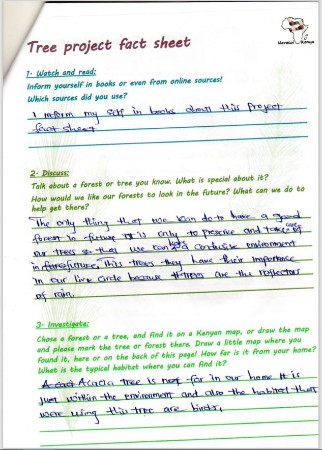 Tree project fact sheet
1- Watch and read:
Inform yourself in books or even from online sources!
Which sources did you use?
I inform my self in books about this project
fact sheet
2- Discuss:
Talk about a forest or tree you know. What is special about it?
How would we like our forests to look in the future? What can we do to
help get there?
The only thing that we can do to have a good
forest in future it is only to preserve and take care
our trees so that we can have conducive environment
in future. This trees they have their importance
in our live circle because trees are the reflectors
of rain.
3- Investigate:
Chose a forest or a tree, and find it on a Kenyan map, or draw the map
and please mark the tree or forest there. Draw a little map where you
found it, here or on the back of this page! How far is it from your home?
What is the typical habitat where you can find it?
Acacia tree is not far in our home It is
just within the environment and also the habitat that
were using this tree are birds,